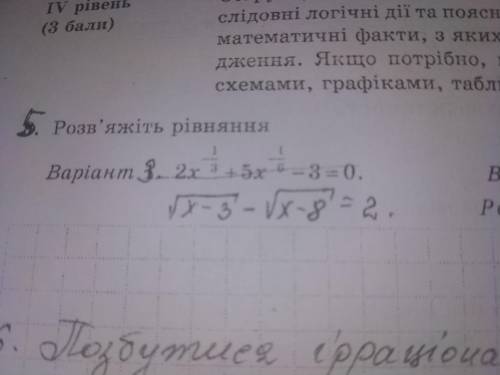 IV рівень
(3 бали)
слідовні логічні дії та поясн
математичні факти, з яких
дження. Якщо потрібно,
схемами, графіками, табл
5. Розв'яжіть рівняння
Варіант 3. 2x^{-1/3} + 5x^{-1/6} − 3 = 0.
√(x−3) − √(x−8) = 2.
Позбутися ірраціона